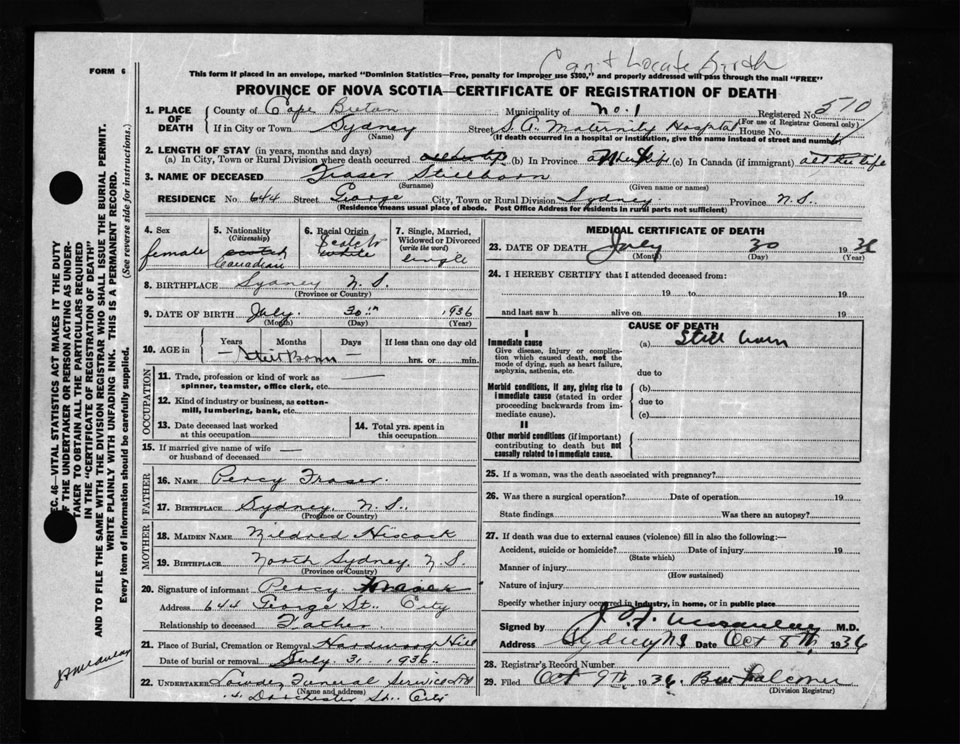 Can't Locate Birth
FORM 6
This form if placed in an envelope, marked "Dominion Statistics—Free, penalty for improper use $300," and properly addressed will pass through the mail "FREE"
PROVINCE OF NOVA SCOTIA—CERTIFICATE OF REGISTRATION OF DEATH
1. PLACE OF DEATH
County of Cape Breton Municipality of No. 1 Registered No. 510
(For use of Registrar General only)
If in City or Town Sydney (Name) Street S. A. Maternity Hospital House No.
(If death occurred in a hospital or institution, give the name instead of street and number)
2. LENGTH OF STAY (in years, months and days)
(a) In City, Town or Rural Division where death occurred (b) In Province (c) In Canada (if immigrant)
3. NAME OF DECEASED Fraser Stillborn
(Surname) (Given name or names)
RESIDENCE No. 644 Street George City, Town or Rural Division Sydney Province N.S.
(Residence means usual place of abode. Post Office Address for residents in rural parts not sufficient)
4. Sex
female
5. Nationality
(Citizenship)
Scotch
Canadian
6. Racial Origin
Scotch
white
7. Single, Married, Widowed or Divorced
(write the word)
single
8. BIRTHPLACE Sydney N.S.
(Province or Country)
9. DATE OF BIRTH July 30th 1936
(Month) (Day) (Year)
10. AGE in Years Months Days If less than one day old
Still Born hrs. or min.
OCCUPATION
11. Trade, profession or kind of work as
spinner, teamster, office clerk, etc.
12. Kind of industry or business, as cotton-
mill, lumbering, bank, etc.
13. Date deceased last worked
at this occupation
14. Total yrs. spent in
this occupation
15. If married give name of wife
or husband of deceased
FATHER
16. NAME Percy Fraser
17. BIRTHPLACE Sydney, N.S.
(Province or Country)
MOTHER
18. MAIDEN NAME Mildred Hiscock
19. BIRTHPLACE North Sydney, N.S.
(Province or Country)
20. Signature of informant Percy Fraser
Address 644 George St. City
Relationship to deceased Father
21. Place of Burial, Cremation or Removal Hardwood Hill
Date of burial or removal July 31 1936
22. UNDERTAKER Funeral Service Ltd
(Name and address)
Dorchester St. City
MEDICAL CERTIFICATE OF DEATH
23. DATE OF DEATH July 30 1936
(Month) (Day) (Year)
24. I HEREBY CERTIFY that I attended deceased from:
19 to 19
and last saw h alive on 19
CAUSE OF DEATH
I
Immediate cause
Give disease, injury or complica-
tion which caused death, not the
mode of dying, such as heart failure,
asphyxia, asthenia, etc.
(a) Still born
due to
Morbid conditions, if any, giving rise to
immediate cause (stated in order
proceeding backwards from im-
mediate cause).
(b)
due to
(c)
II
Other morbid conditions (if important)
contributing to death but not
causally related to immediate cause.
25. If a woman, was the death associated with pregnancy?
26. Was there a surgical operation? Date of operation 19
State findings Was there an autopsy?
27. If death was due to external causes (violence) fill in also the following:—
Accident, suicide or homicide? Date of injury 19
(State which)
Manner of injury
(How sustained)
Nature of injury
Specify whether injury occurred in industry, in home, or in public place
Signed by M.D.
Address Sydney N.S. Date Oct 8th 1936
28. Registrar's Record Number
29. Filed Oct 9th 1936 Falconer
(Division Registrar)
SEC. 46—VITAL STATISTICS ACT MAKES IT THE DUTY
OF THE UNDERTAKER OR PERSON ACTING AS UNDER-
TAKER TO OBTAIN ALL THE PARTICULARS REQUIRED
IN THE "CERTIFICATE OF REGISTRATION OF DEATH"
AND TO FILE THE SAME WITH THE DIVISION REGISTRAR WHO SHALL ISSUE THE BURIAL PERMIT.
WRITE PLAINLY WITH UNFADING INK. THIS IS A PERMANENT RECORD.
Every item of information should be carefully supplied. (See reverse side for instructions.)